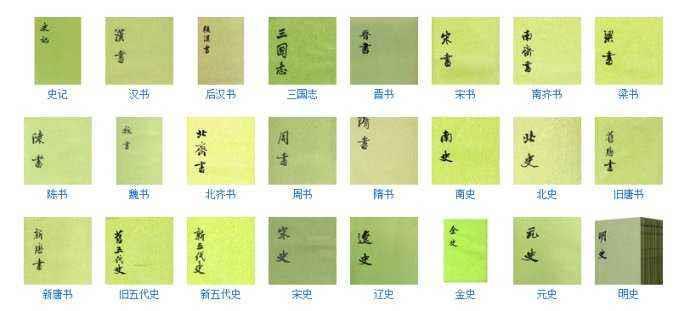 史记
漢書
後漢書
三国志
晋書
宋書
南齊書
梁書
史记 汉书 后汉书 三国志 晋书 宋书 南齐书 梁书
陳書
魏書
北齊書
周書
隋書
南史
北史
舊唐書
陈书 魏书 北齐书 周书 隋书 南史 北史 旧唐书
新唐書
舊五代史
新五代史
宋史
遼史
金史
元史
明史
新唐书 旧五代史 新五代史 宋史 辽史 金史 元史 明史